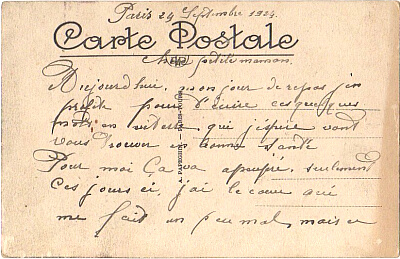 Paris 24 Septembre 1924.
Carte Postale
Chère petite maman.
Aujourdhui, mon jour de repos j'en
profite pour t'écrire ces quelques
mots, en vitesse, qui j'espère vont
vous trouver en bonne santé
Pour moi ça va apeuprè, seulement
Ces jours ci, j'ai le cœur qui
me fait un peu mal, mais ce